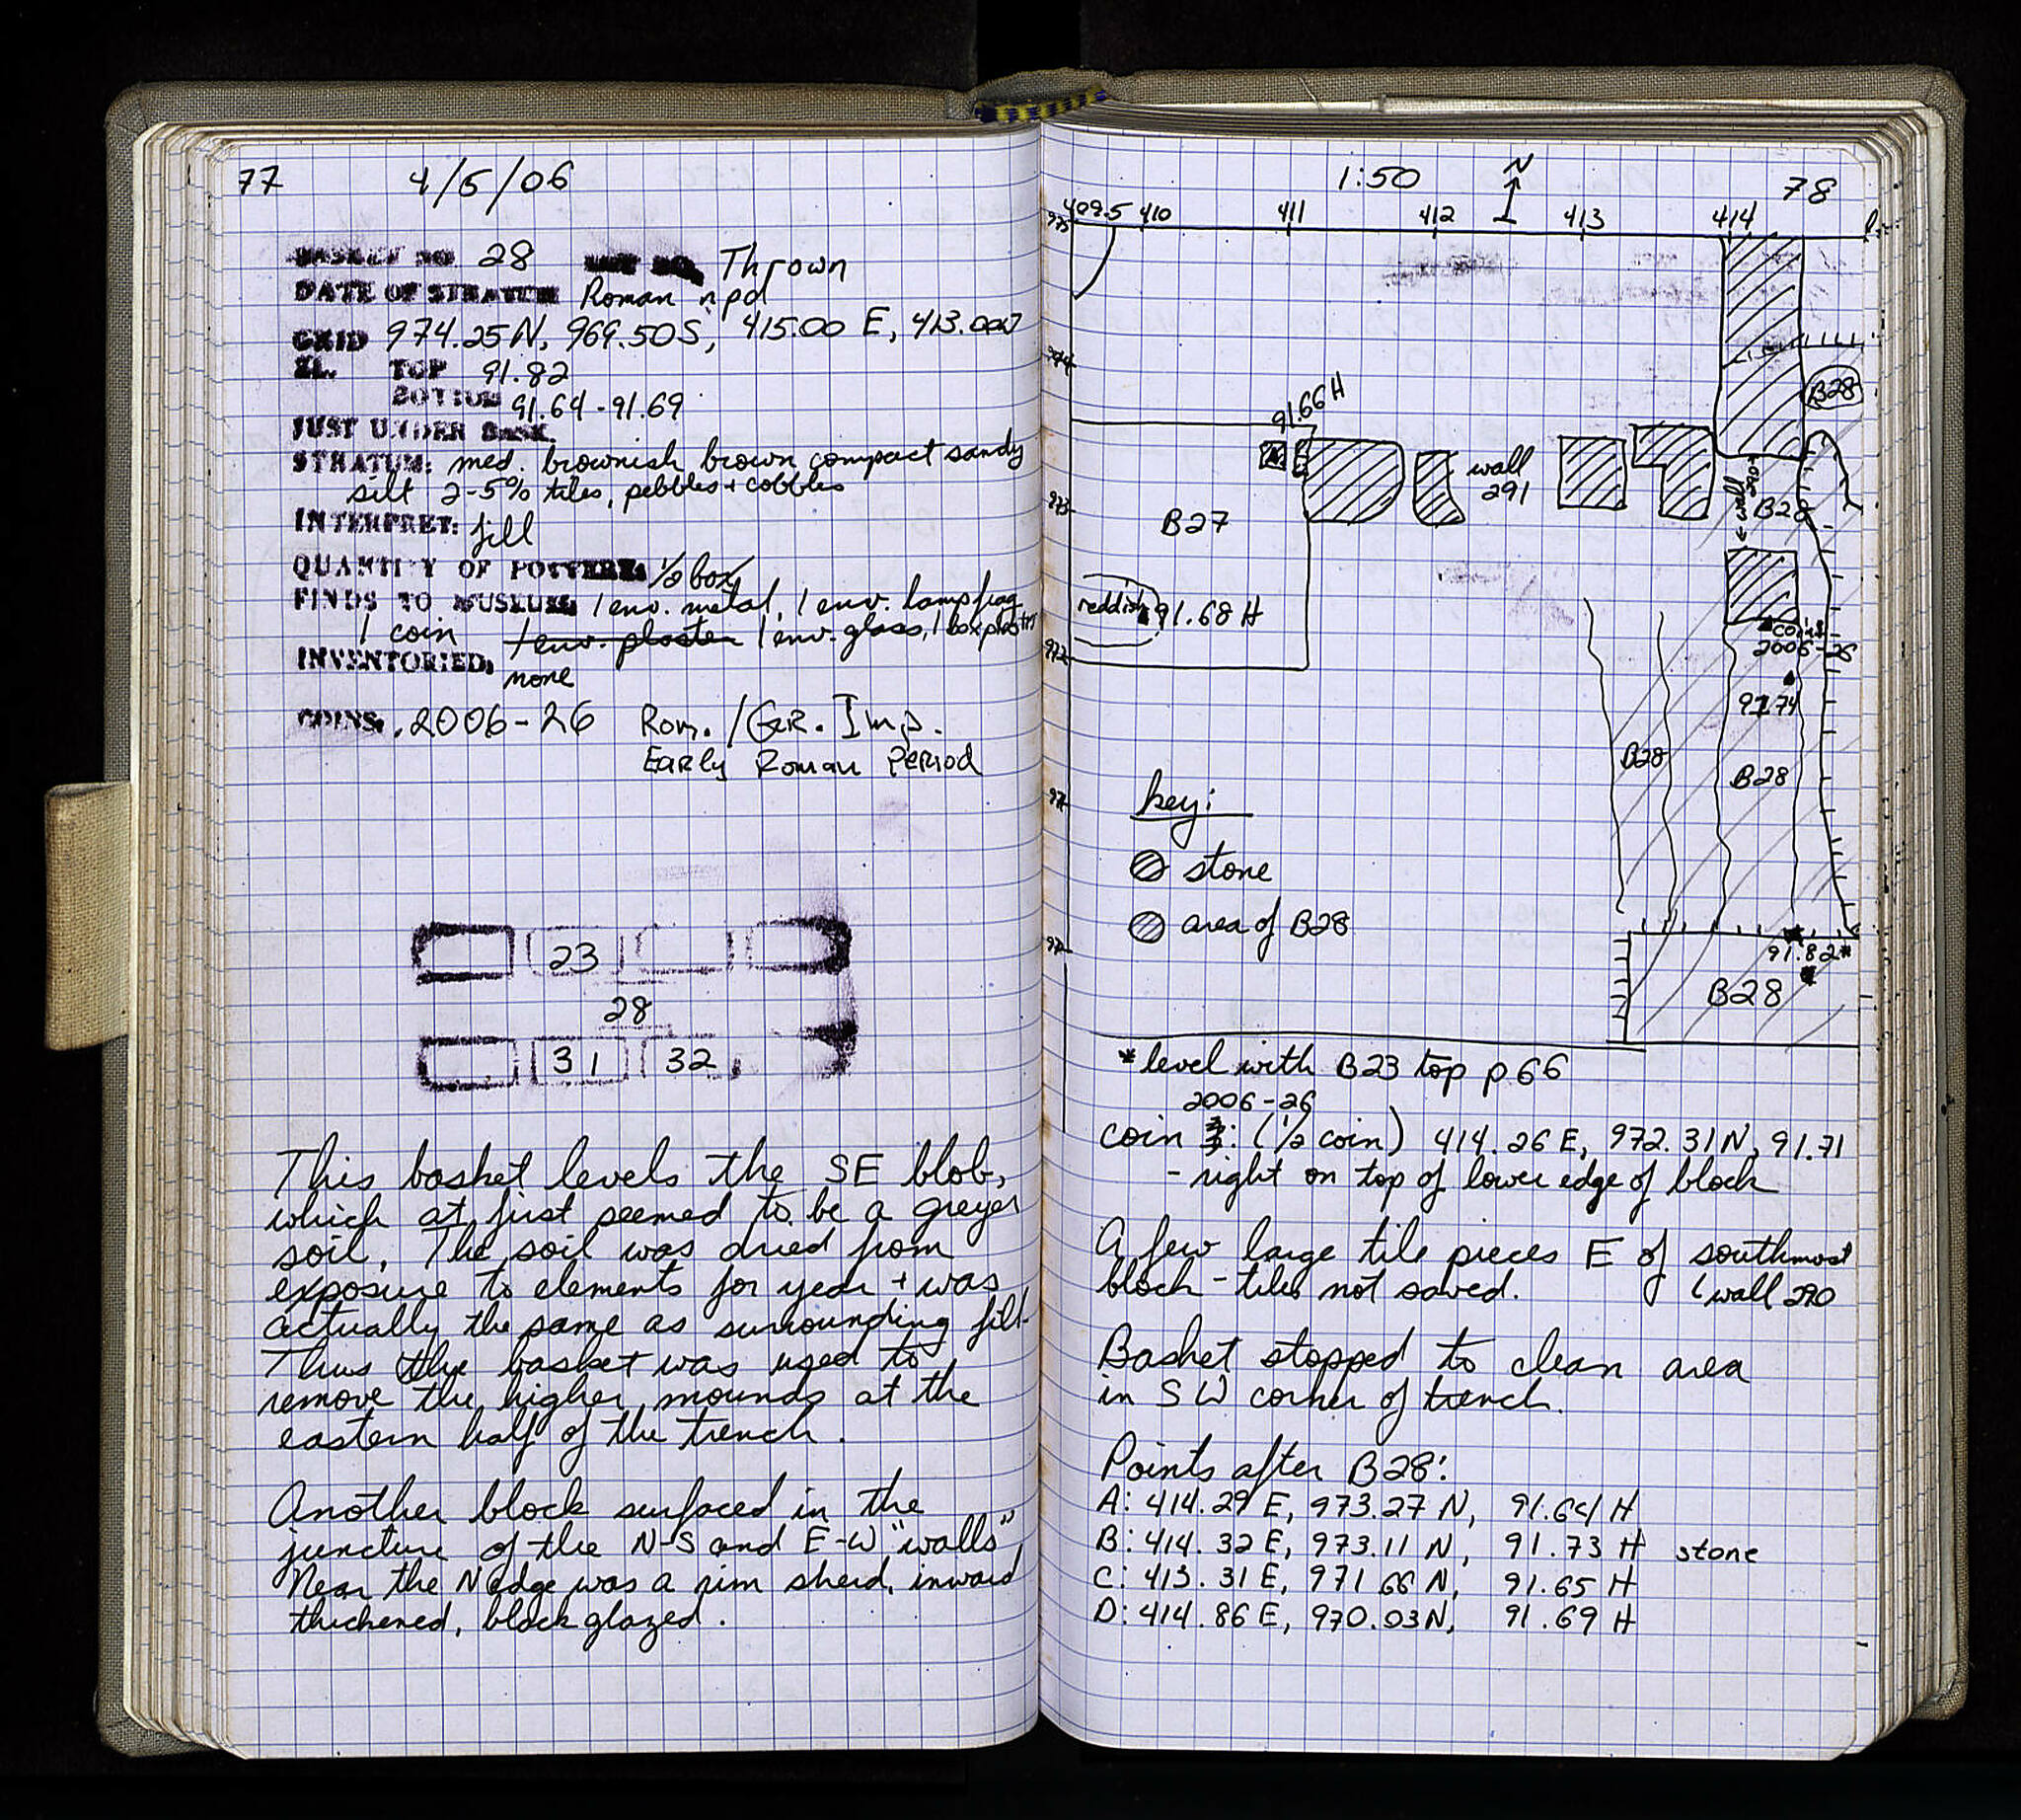 77 4/5/06
BASKET NO 28 LOT NO. Thrown
DATE OF STRATUM Roman npd
GRID 974.25N, 969.50S, 415.00 E, 413.00W
EL. TOP 91.82
BOTTOM 91.64-91.69
JUST UNDER BASK.
STRATUM: med. brownish brown compact sandy
silt 2-5% tiles, pebbles + cobbles
INTERPRET: fill
QUANTITY OF POTTERY: 1/2 box
FINDS TO MUSEUM: 1 env. metal, 1 env. lamp frag
1 coin 1 env. plaster 1 env. glass, 1 box plaster
INVENTORIED, none
COINS, 2006-26 Rom./GR. Imp.
Early Roman Period
23
28
31 32
This basket levels the SE blob,
which at first seemed to be a greyer
soil. The soil was dried from
exposure to elements for year + was
actually the same as surrounding fill.
Thus the basket was used to
remove the higher mounds at the
eastern half of the trench.
Another block surfaced in the
juncture of the N-S and E-W "walls"
Near the N edge was a rim sherd, inward
thickened, black glazed.
1:50 N 78
409.5 410 411 412 413 414
975
974
B28
91.66 H
wall
291
973
B27
wall 290
B28
reddish 91.68 H
coin
2006-26
972
91.74
B28
B28
971
key:
stone
area of B28
970
91.82*
B28
*level with B23 top p 66
2006-26
coin 3: (1/2 coin) 414.26 E, 972.31 N, 91.71
- right on top of lower edge of block
A few large tile pieces E of southmost
block - tiles not saved. wall 290
Basket stopped to clean area
in SW corner of trench.
Points after B28:
A: 414.29 E, 973.27 N, 91.64 H
B: 414.32 E, 973.11 N, 91.73 H stone
C: 413.31 E, 971 66 N, 91.65 H
D: 414.86 E, 970.03 N, 91.69 H